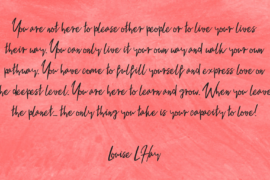 You are not here to please other people or to live your lives
their way. You can only live it your own way and walk your own
pathway. You have come to fulfill yourself and express love on
the deepest level. You are here to learn and grow. When you leave
the planet... the only thing you take is your capacity to love!
Louise L. Hay